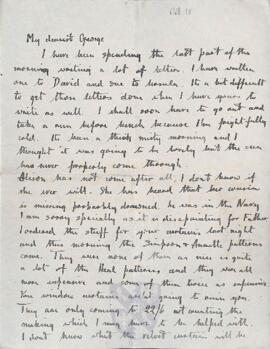 Oct. 18
My dearest George
I have been spending the last part of the
morning writing a lot of letters. I have written
one to David and one to Ursula. Its a bit difficult
to get those letters done when I have yours to
write as well. I shall soon have to go out and
take a run before lunch because I'm frightfully
cold. Its been a thick misty morning and I
thought it was going to be lovely but the sun
has never properly come through.
has not come after all, I don't know if
she ever will. She has heard that her cousin
is missing probably drowned, he was in the Navy.
I am sorry specially as it is disappointing for Father.
I ordered the stuff for your curtains last night
and this morning the Simpson & patterns
came. They are none of them as nice is quite
a lot of the Heal patterns and they were all
more expensive and some of them twice as expensive.
The window curtains aren't going to ruin you.
They are only coming to 22/6 not counting the
making which I may have to be helped with.
I don't know what the velvet curtain will be